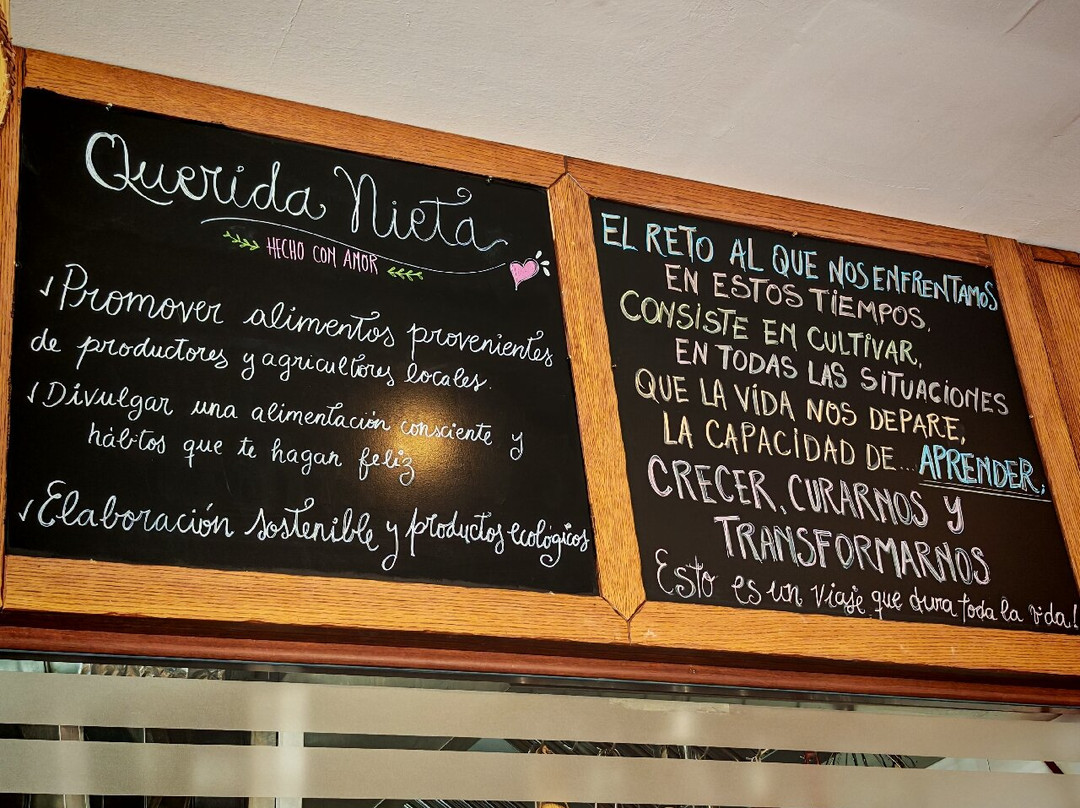 Querida Nieta
HECHO CON AMOR
✓Promover alimentos provenientes
de productores y agricultores locales.
✓Divulgar una alimentación consciente y
hábitos que te hagan feliz
✓Elaboración sostenible y productos ecológicos
EL RETO AL QUE NOS ENFRENTAMOS
EN ESTOS TIEMPOS,
CONSISTE EN CULTIVAR,
EN TODAS LAS SITUACIONES
QUE LA VIDA NOS DEPARE,
LA CAPACIDAD DE... APRENDER,
CRECER, CURARNOS Y
TRANSFORMARNOS
Esto es un viaje que dura toda la vida!